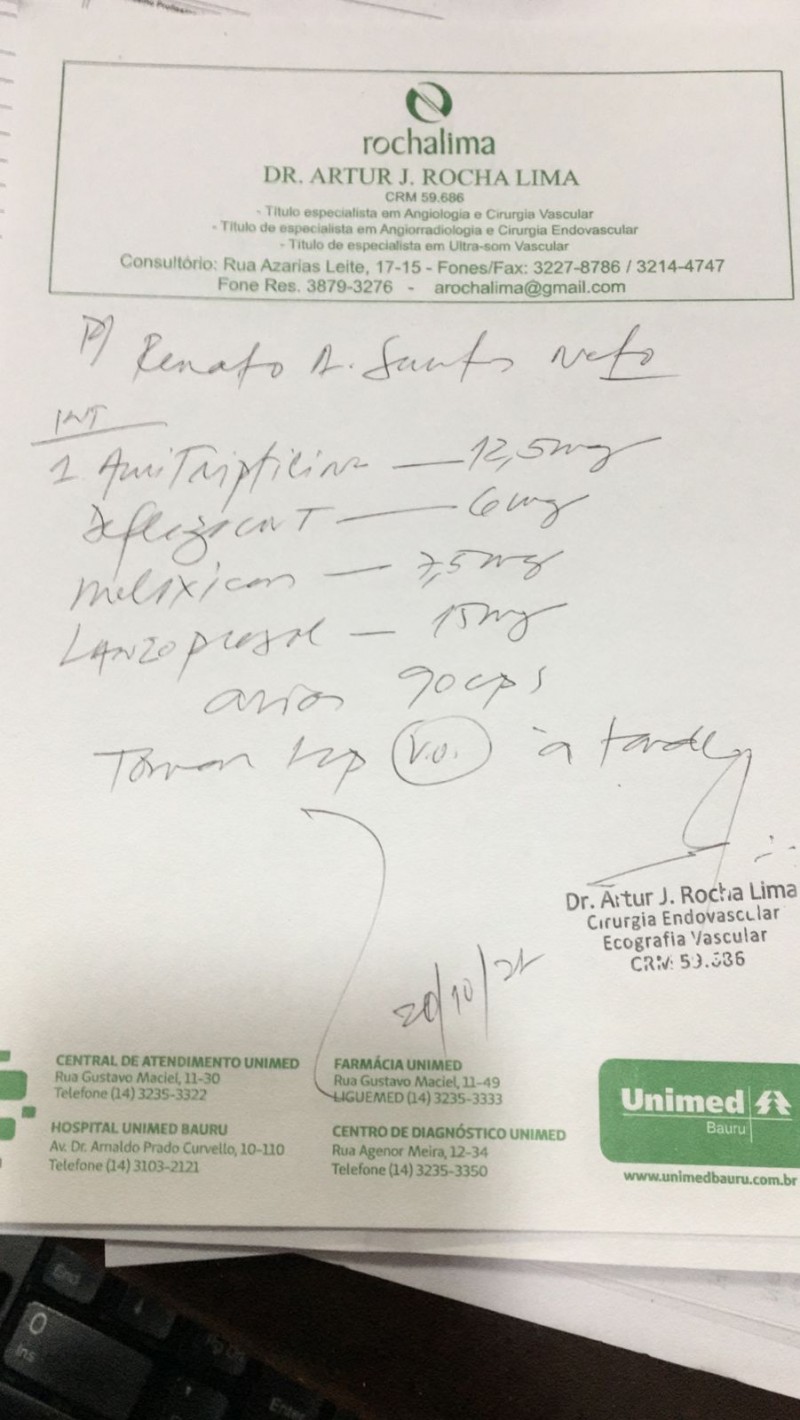 rochalima
DR. ARTUR J. ROCHA LIMA
CRM 59.686
- Título especialista em Angiologia e Cirurgia Vascular
- Título de especialista em Angiorradiologia e Cirurgia Endovascular
- Título de especialista em Ultra-som Vascular
Consultório: Rua Azarias Leite, 17-15 - Fones/Fax: 3227-8786 / 3214-4747
Fone Res. 3879-3276 - arochalima@gmail.com
P/ Renato A. Santos Neto
INT
1 Amitriptilina — 12,5mg
Deflazacort — 6mg
Meloxican — 7,5mg
Lanzoprasol — 15mg
90cps
Tomar 1cp V.O. à tarde
Dr. Artur J. Rocha Lima
Cirurgia Endovascular
Ecografia Vascular
CRM: 59.686
20/10/21
CENTRAL DE ATENDIMENTO UNIMED
Rua Gustavo Maciel, 11-30
Telefone (14) 3235-3322
FARMÁCIA UNIMED
Rua Gustavo Maciel, 11-49
LIGUEMED (14) 3235-3333
HOSPITAL UNIMED BAURU
Av. Dr. Arnaldo Prado Curvello, 10-110
Telefone (14) 3103-2121
CENTRO DE DIAGNÓSTICO UNIMED
Rua Agenor Meira, 12-34
Telefone (14) 3235-3350
Unimed
Bauru
www.unimedbauru.com.br
End
0
Ins
Enter